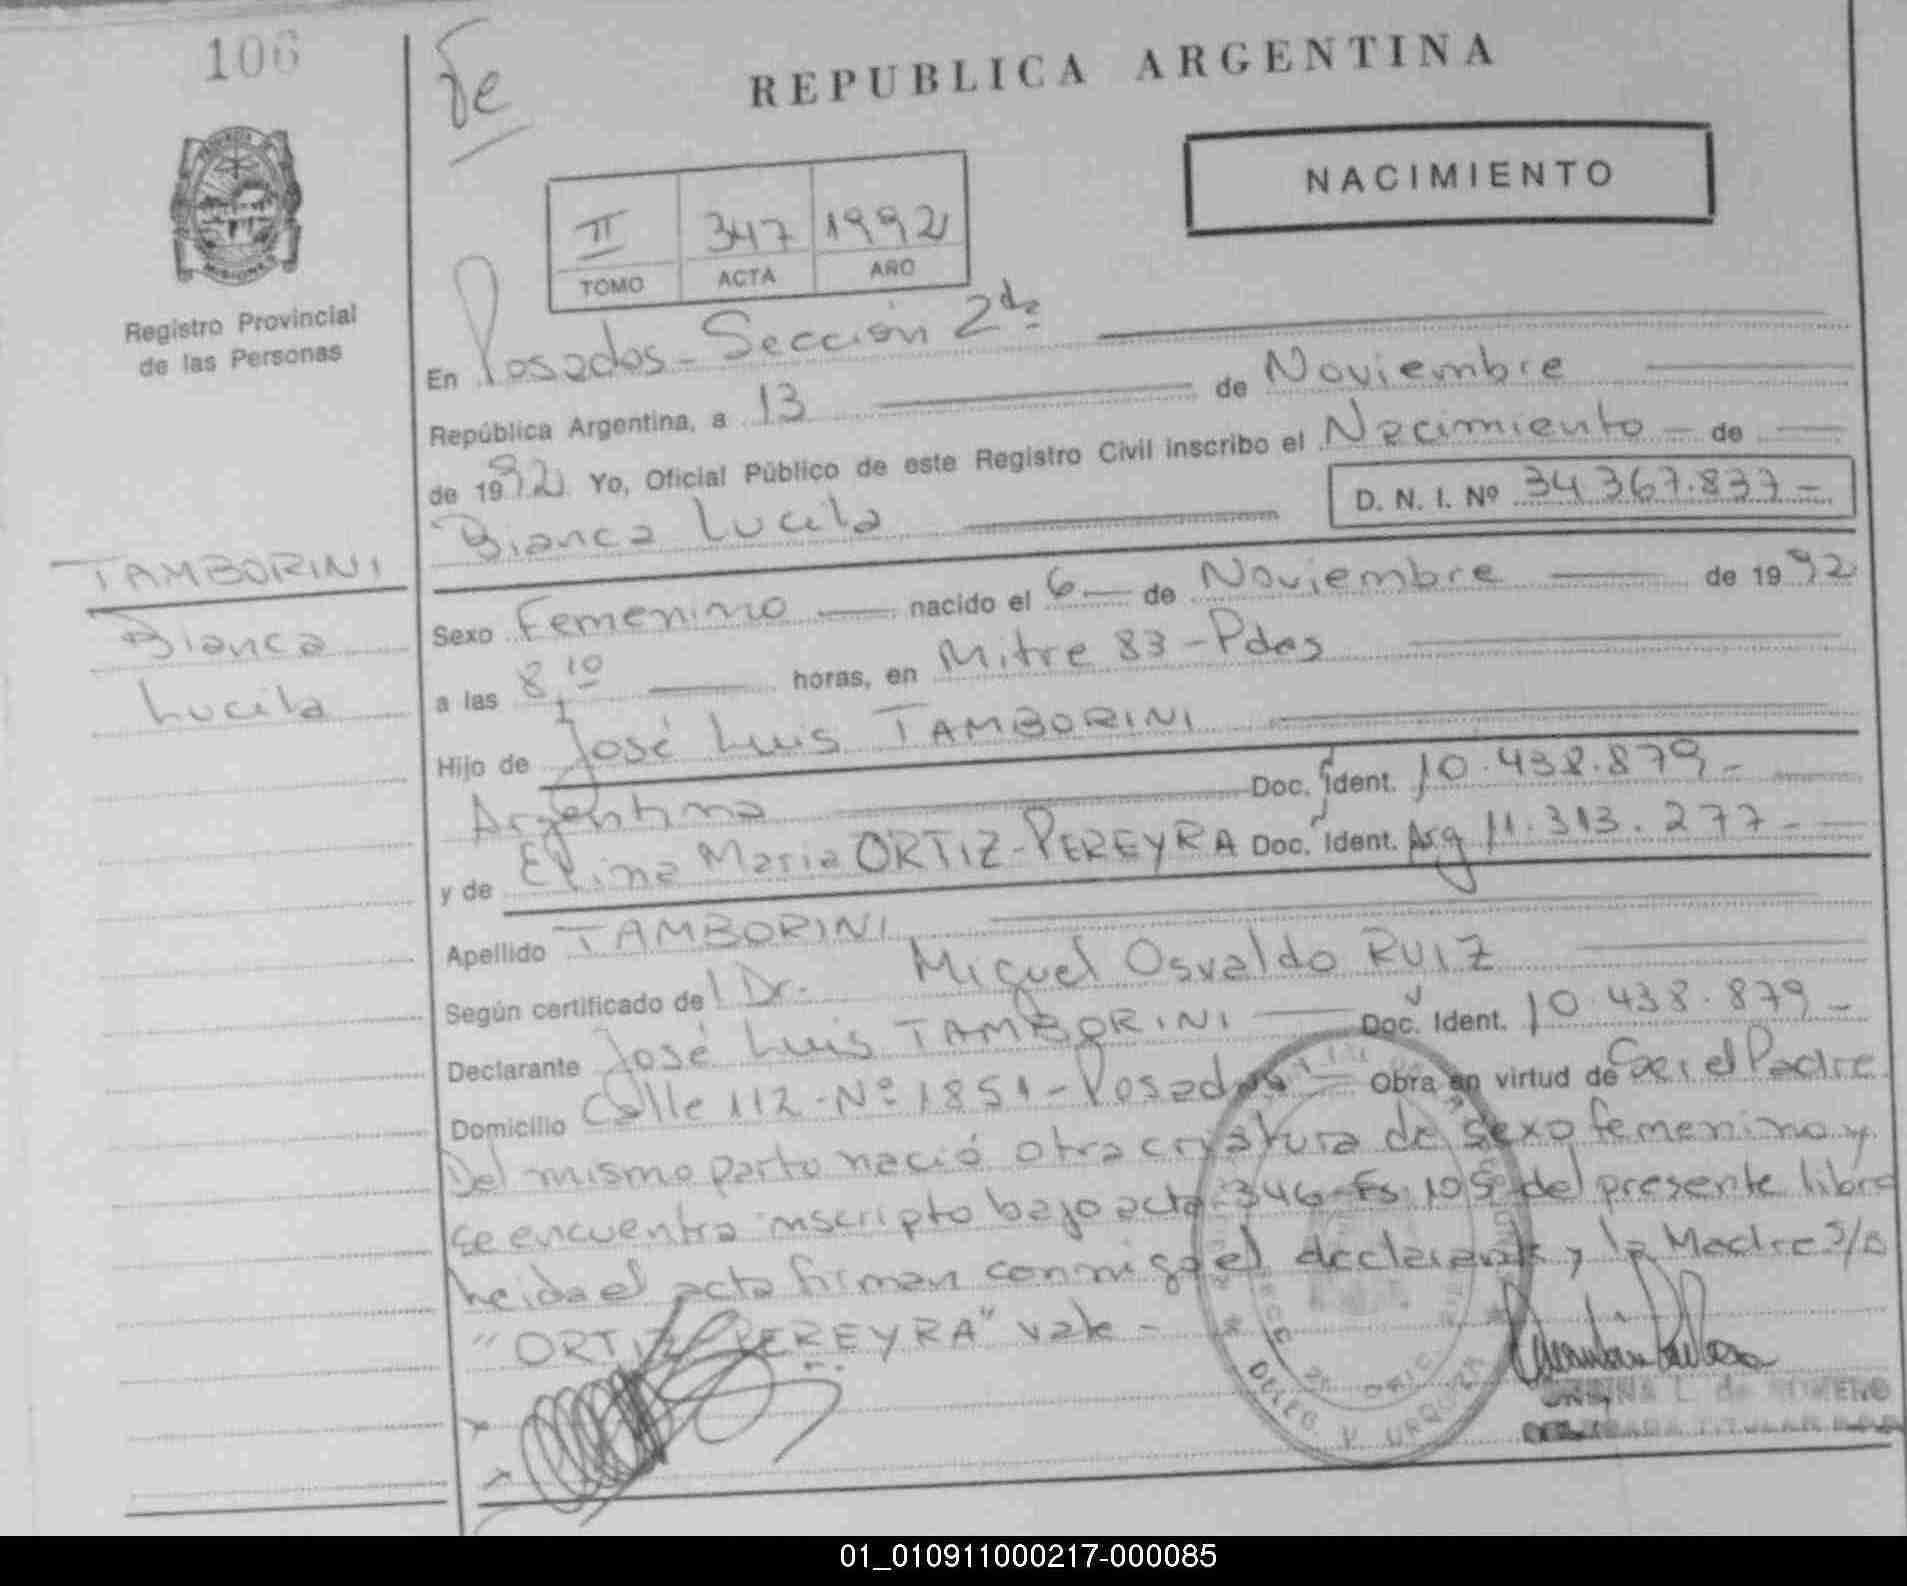 106
Je
REPUBLICA ARGENTINA
NACIMIENTO
II 347 1992
TOMO ACTA AÑO
MISIONES
Registro Provincial
de las Personas
En Posadas - Sección 2da
República Argentina, a 13 de Noviembre
de 1992 Yo, Oficial Público de este Registro Civil inscribo el Nacimiento - de
Bianca Lucila D. N. I. Nº 34 367.837 -
TAMBORINI
Bianca
Lucila
Sexo Femenino nacido el 6 de Noviembre de 1992
a las 8,10 horas, en Mitre 83 - Pdas
Hijo de José Luis TAMBORINI
Argentina Doc. Ident. 10.438.879 -
y de Elina Maria ORTIZ-PEREYRA Doc. Ident. Arg 11.313.277 -
Apellido TAMBORINI
Según certificado del Dr. Miguel Osvaldo RUIZ
Declarante José Luis TAMBORINI Doc. Ident. 10.438.879 -
Domicilio Calle 112 - Nº 1851 - Posadas Obra en virtud de Ser el Padre
Del mismo parto nació otra criatura de sexo femenino y
se encuentra inscripto bajo acta 346 - Fs 105 del presente libro
Leida el acta firman conmigo el declarante y la Madre S/R
"ORTIZ PEREYRA" vale -
DELEG V URQUIZA
L. de ROMERO
TITULAR
01_010911000217-000085